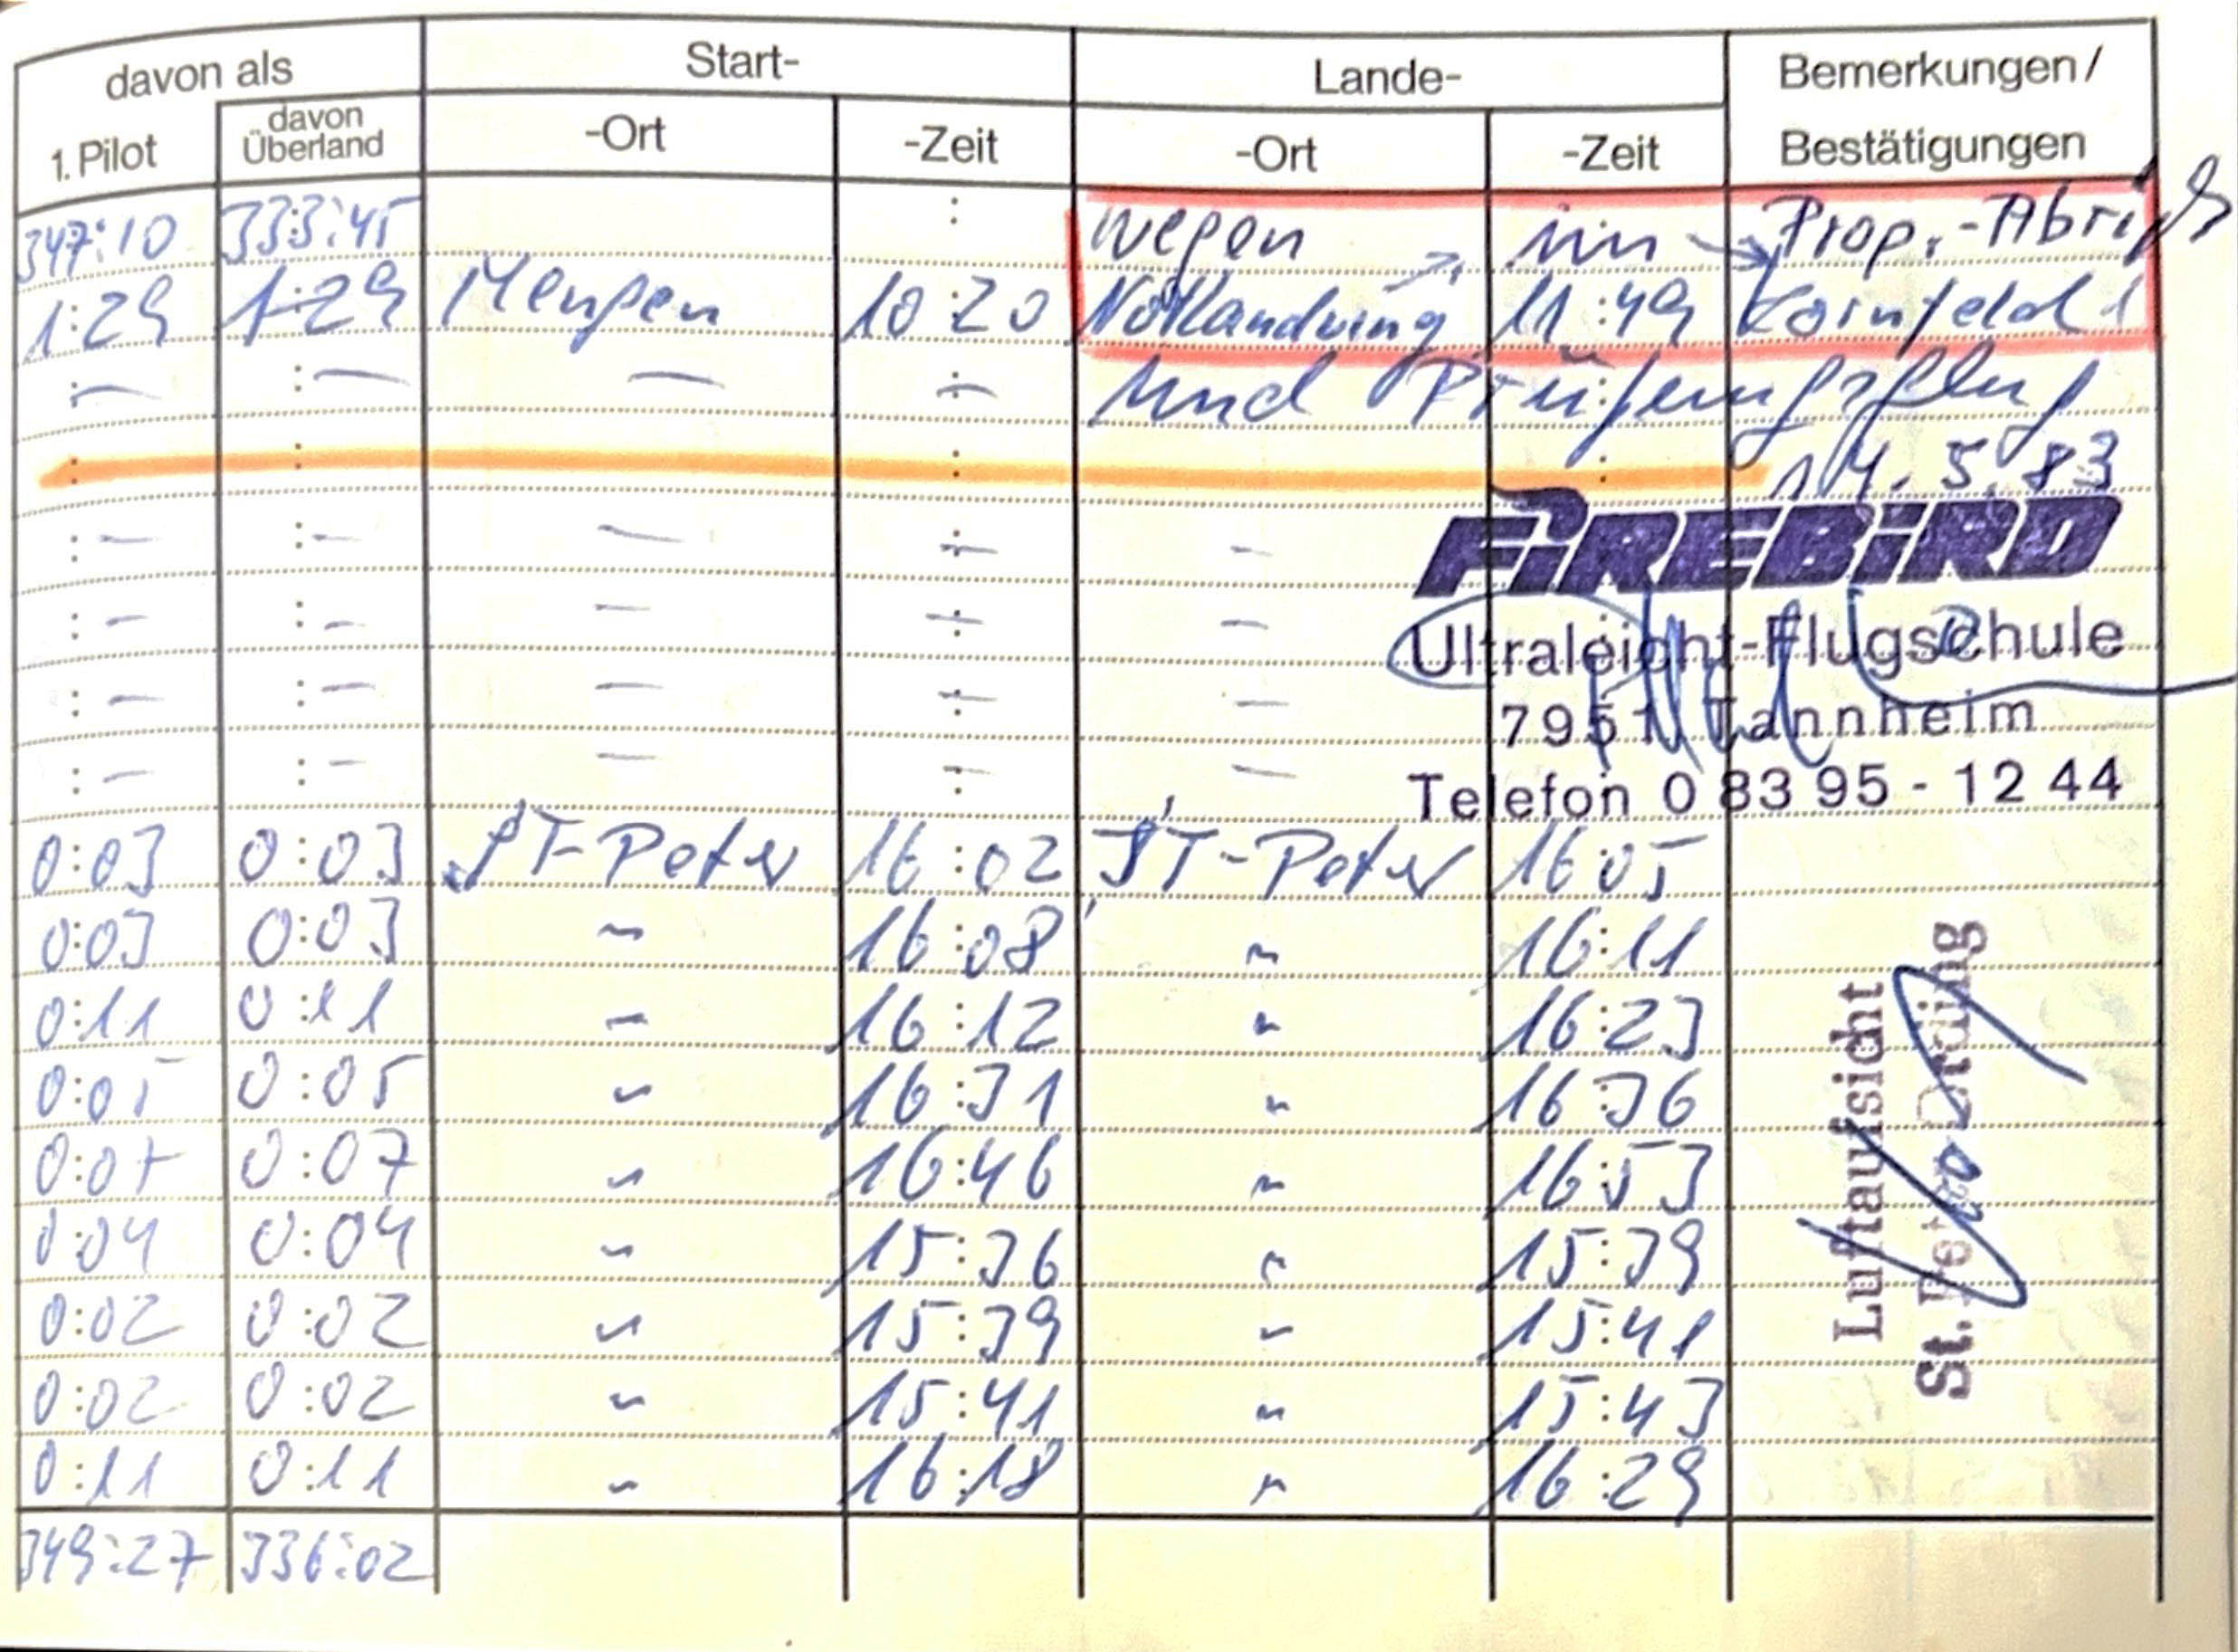 davon als Start- Lande- Bemerkungen/
1. Pilot davon Überland -Ort -Zeit -Ort -Zeit Bestätigungen
347:10 333:45 : wegen im → Prop.-Abriß
1:29 1:29 Mengen 10:20 Notlandung 11:49 Kornfeld!
:— :— — :— und Prüfungsflug
: : : : 14.5.83
:— :— — :— — FiREBiRD
:— :— — :— — Ultraleicht-Flugschule
:— :— — :— — 7951 Tannheim
:— :— — :— — Telefon 0 83 95 - 12 44
0:03 0:03 ST-Peter 16:02 ST-Peter 16:05
0:03 0:03 " 16:08 " 16:11
0:11 0:11 " 16:12 " 16:23
0:05 0:05 " 16:31 " 16:36
0:07 0:07 " 16:46 " 16:53
0:04 0:04 " 15:36 " 15:39
0:02 0:02 " 15:39 " 15:41
0:02 0:02 " 15:41 " 15:43
0:11 0:11 " 16:18 " 16:29
Luftaufsicht
St. Peter Ording
349:27 336:02